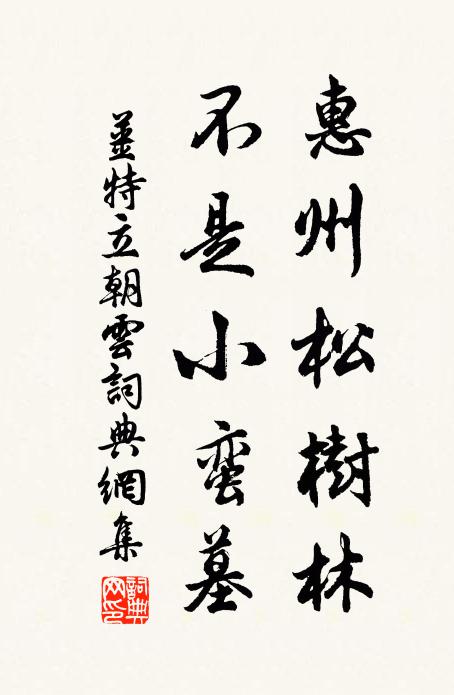 惠州松樹林
不是小蛮墓
姜特立朝雲詞典網集
詞典網印